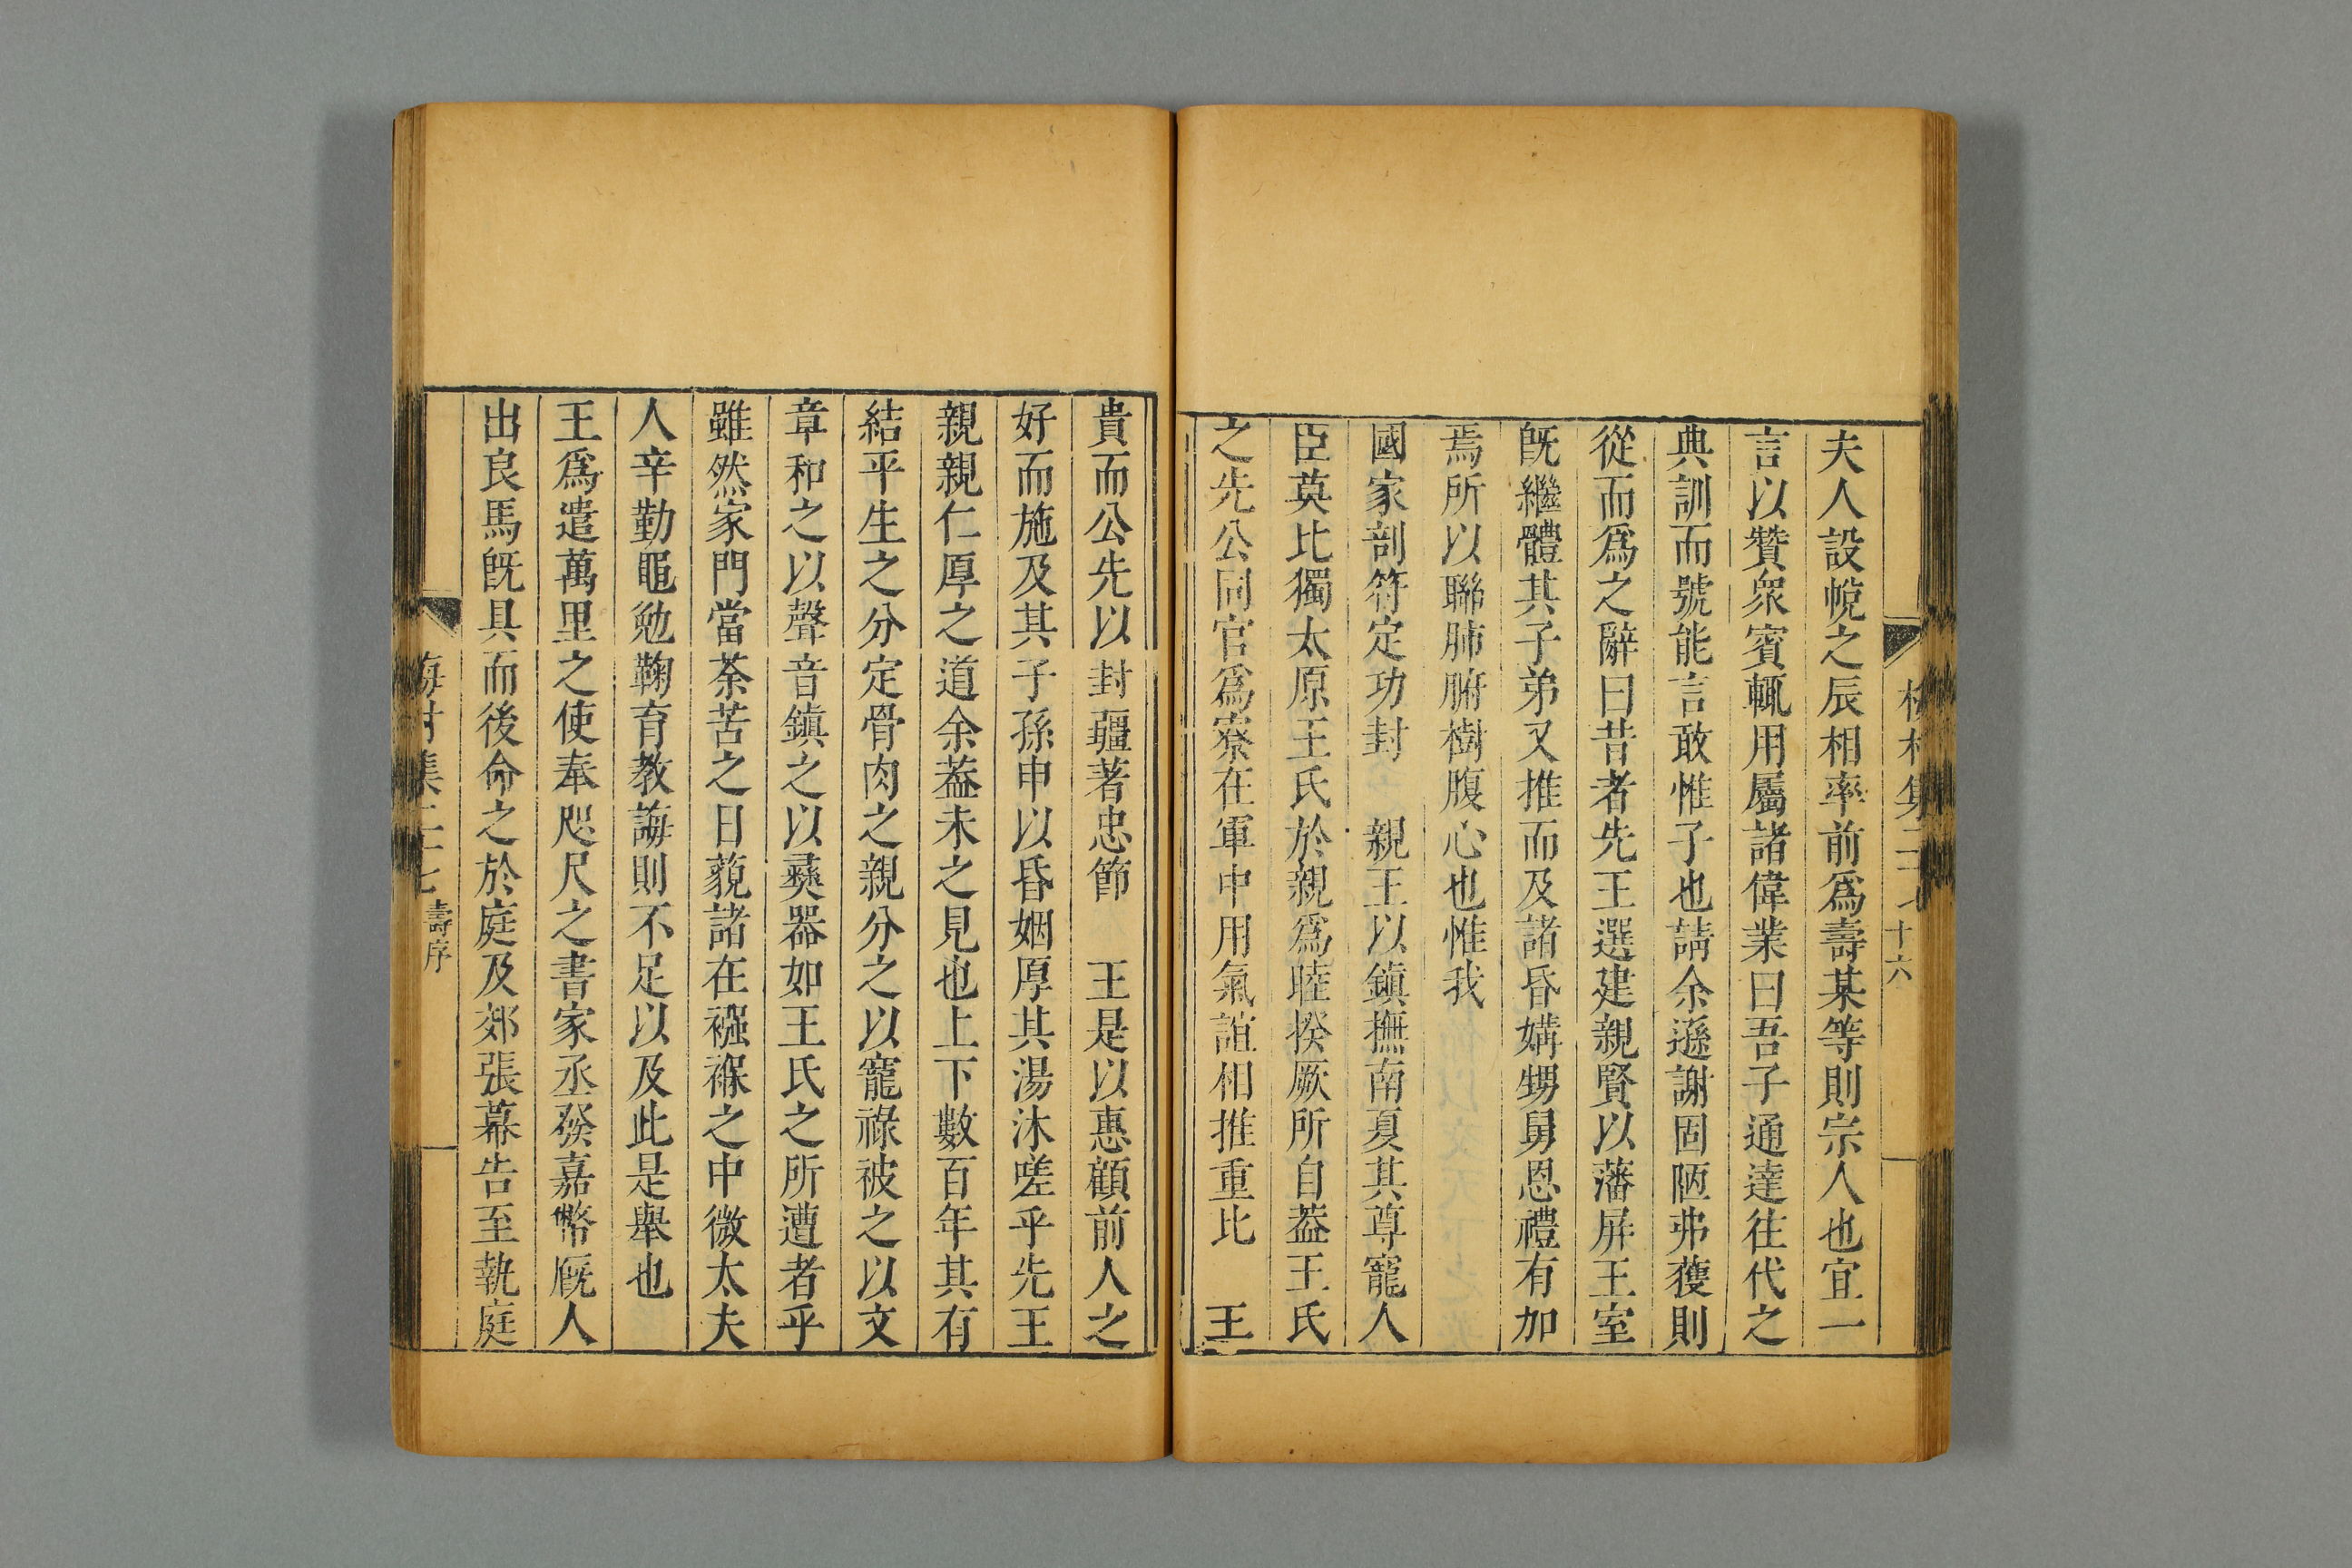 夫人設帨之辰相率前爲壽某等則宗人也宜一
言以贊衆賓輒用屬諸偉業曰吾子通達往代之
典訓而號能言敢惟子也請余遜謝固陋弗獲則
從而爲之辭曰昔者先王選建親賢以藩屏王室
旣繼體其子弟又推而及諸昏媾甥舅恩禮有加
焉所以聯肺腑樹腹心也惟我
國家剖符定功封 親王以鎮撫南夏其尊寵人
臣莫比獨太原王氏於親爲睦揆厥所自葢王氏
之先公同官爲寮在軍中用氣誼相推重比 王
貴而公先以封疆著忠節 王是以惠顧前人之
好而施及其子孫申以昏姻厚其湯沐嗟乎先王
親親仁厚之道余葢未之見也上下數百年其有
結平生之分定骨肉之親分之以寵祿被之以文
章和之以聲音鎮之以彝器如王氏之所遭者乎
雖然家門當荼苦之日藐諸在襁褓之中微太夫
人辛勤黽勉鞠育教誨則不足以及此是舉也
王爲遣萬里之使奉咫尺之書家丞發嘉幣廐人
出良馬旣具而後命之於庭及郊張幕告至執庭
梅村集二十七 壽序
十六